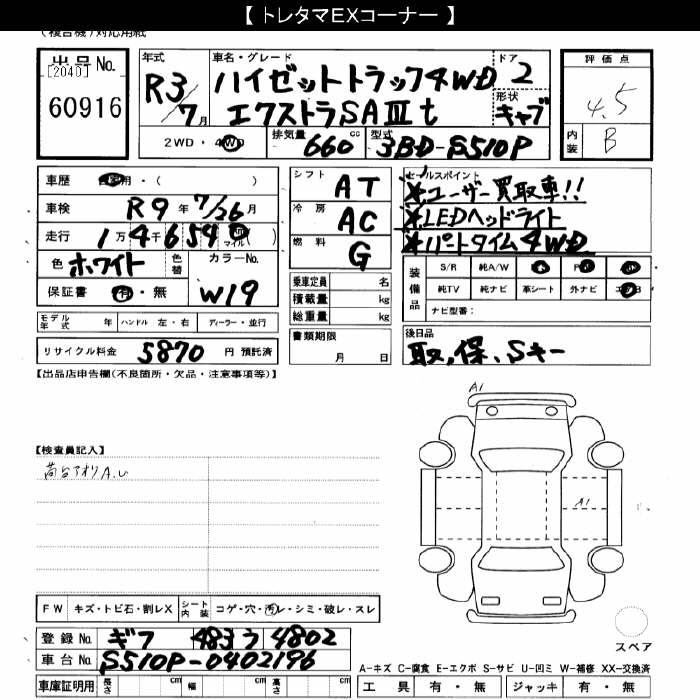 【 トレタマEXコーナー 】
(複合機)対応用紙
出品No.
[2040]
60916
年式
R3/7月
車名・グレード
ハイゼットトラック4WD
エクストラSAⅢt
ドア
2
形状
キャブ
2WD・4WD
排気量
660 cc
型式
3BD-S510P
評価点
4.5
内装
B
車歴 自家用・( )
車検 R9年7/26月
走行 1万4千654 マイル( )
色 ホワイト
色替
カラーNo.
W19
保証書 有・無
シフト AT
冷房 AC
燃料 G
乗車定員 名
積載量 kg
総重量 kg
セールスポイント
*ユーザー買取車!!
*LEDヘッドライト
*パートタイム4WD
装備品
S/R 純A/W
純TV 純ナビ 革シート 外ナビ エアB
ナビ型番:
モデル年式 年 ハンドル 左・右 ディーラー・並行
リサイクル料金 5870 円 預託済
書類期限
月 日
後日品
取、保、Sキー
【出品店申告欄(不良箇所・欠品・注意事項等)】
【検査員記入】
荷台アオリA.U
A1
A1
FW キズ・トビ石・割レX シート内装 コゲ・穴・汚レ・シミ・破レ・スレ
登録No. ギフ 483 う 4802
車台No. S510P-0402196
車庫証明用 長さ cm 幅 cm 高さ cm
スペア
A-キズ C-腐食 E-エクボ S-サビ U-凹ミ W-補修 XX-交換済
工具 有・無 ジャッキ 有・無